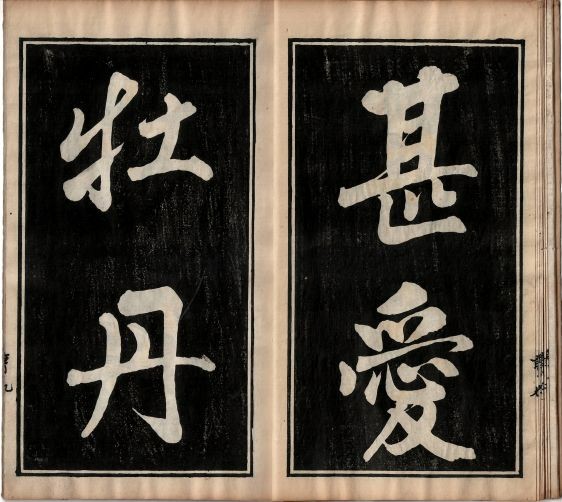 甚愛
牡丹